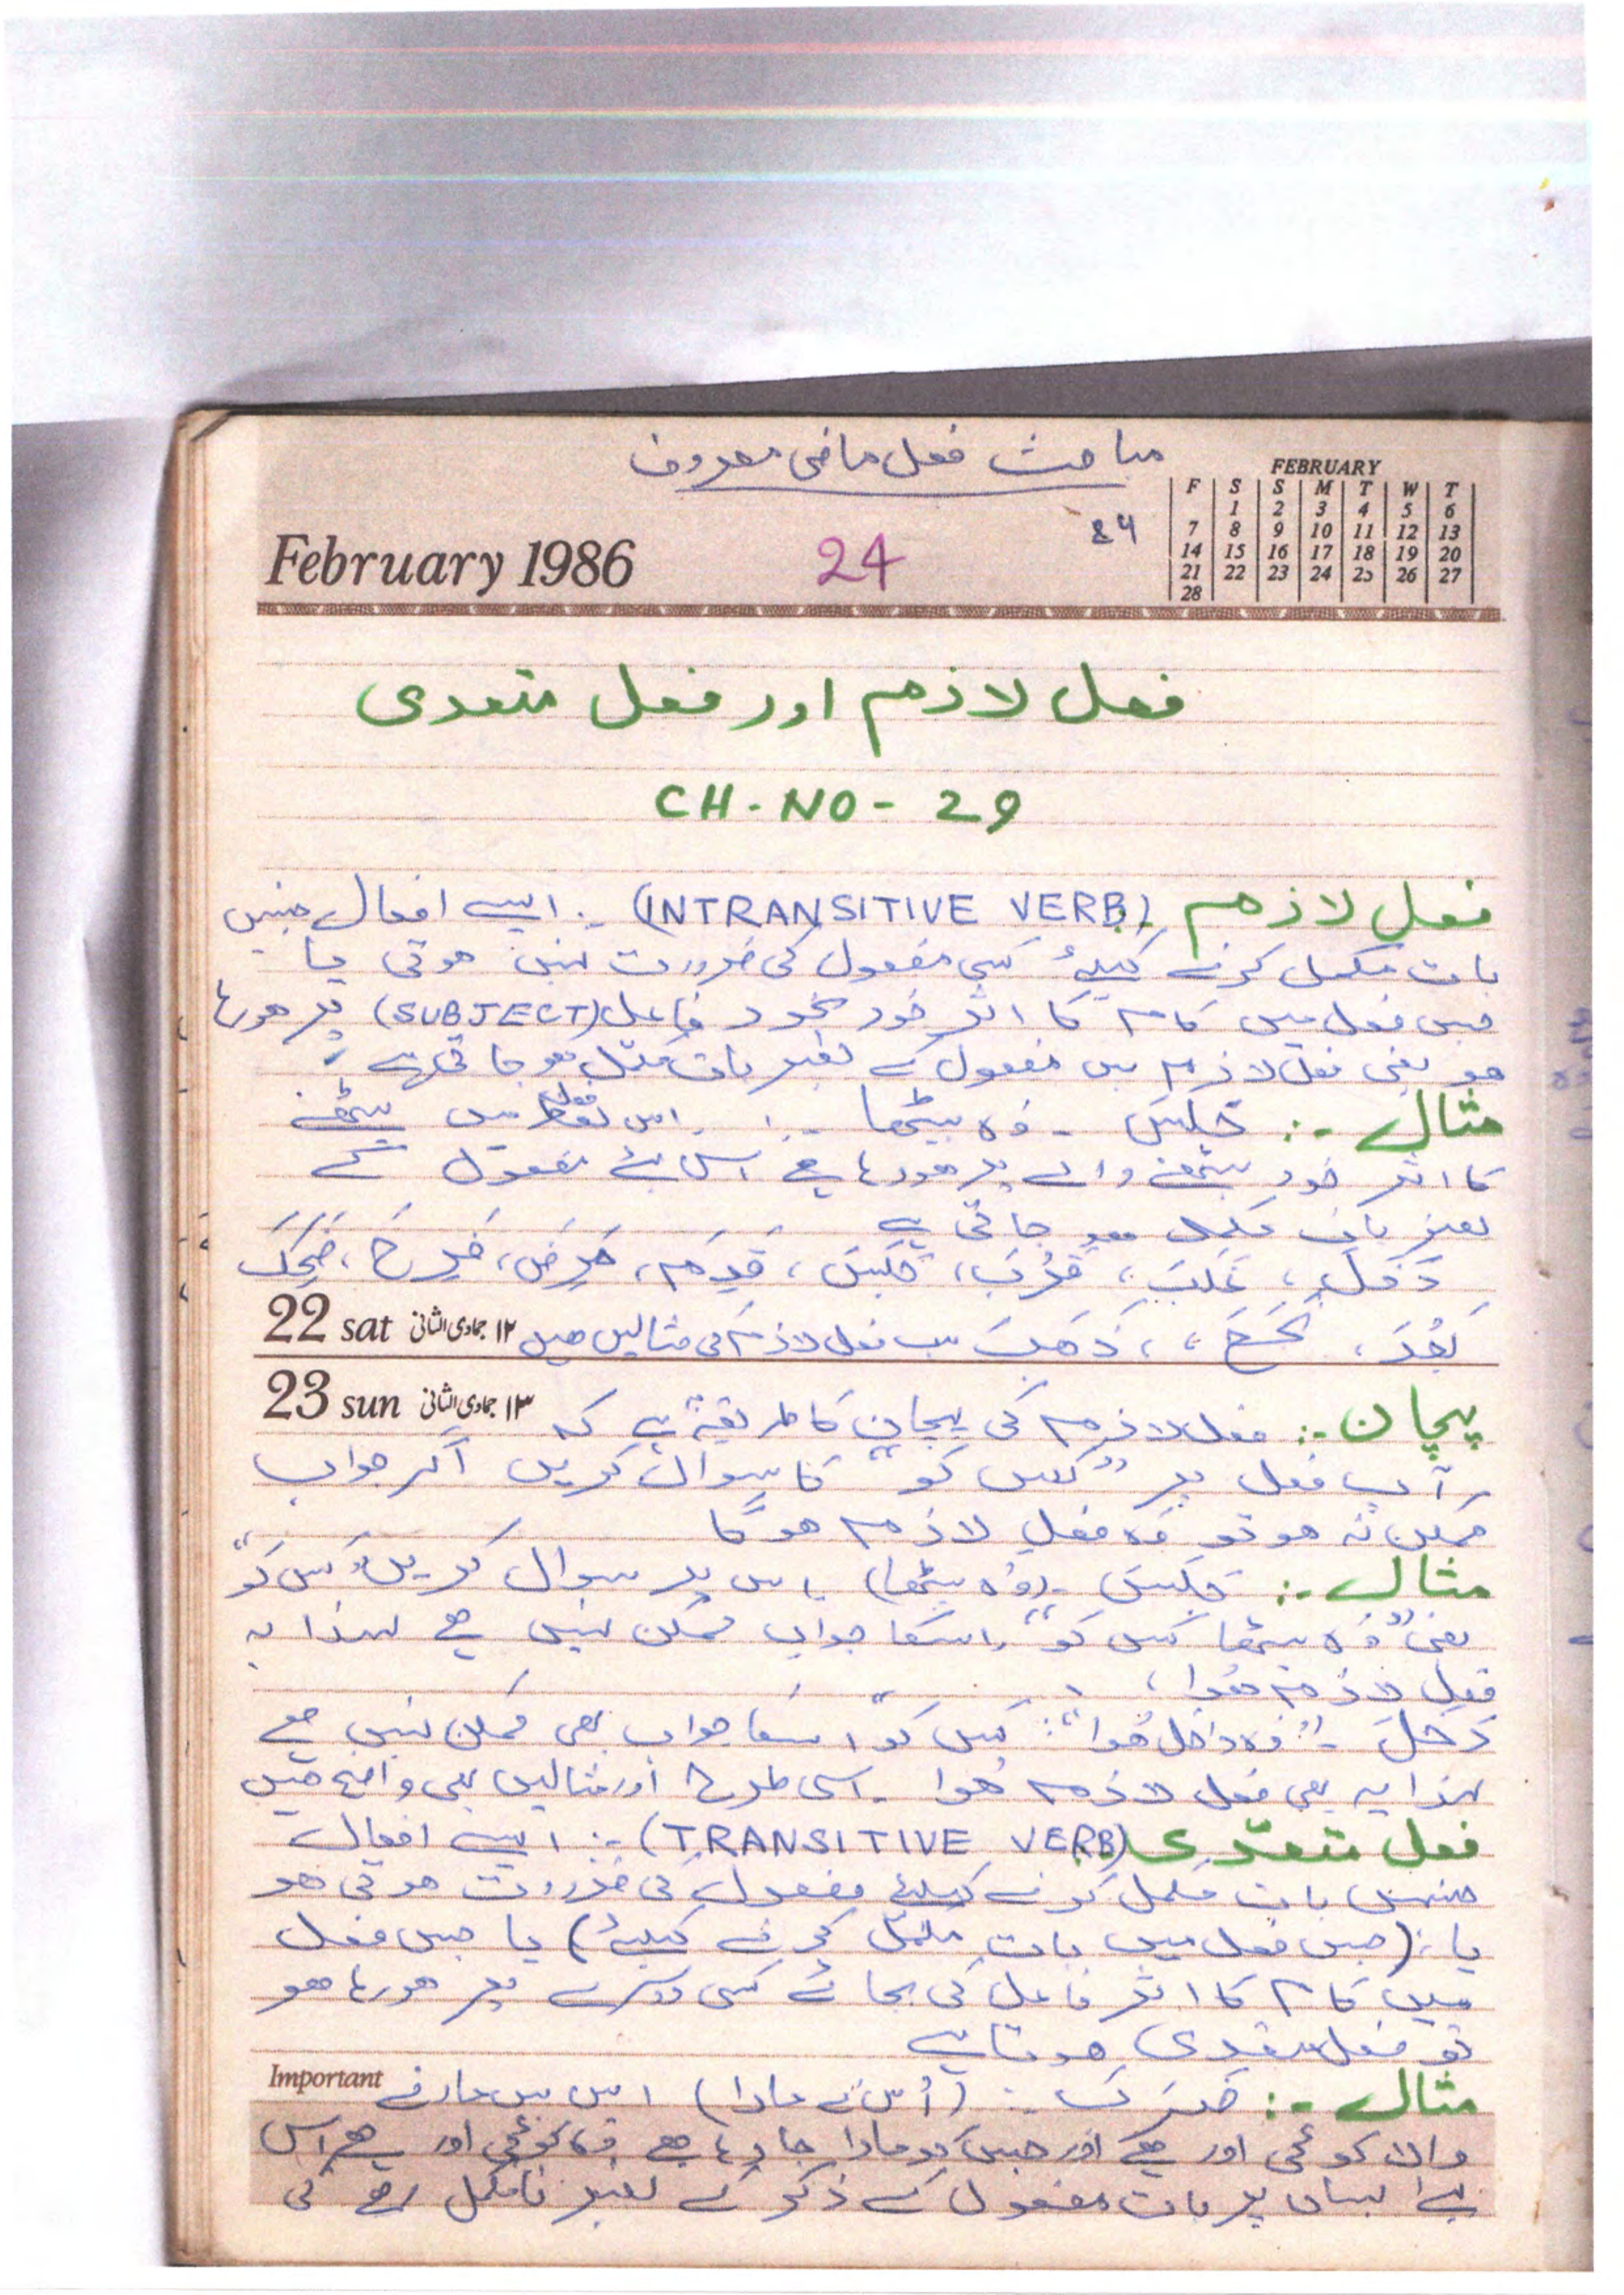 مباحث فعل ماضی معروف
FEBRUARY
F S S M T W T
1 2 3 4 5 6
7 8 9 10 11 12 13
14 15 16 17 18 19 20
21 22 23 24 25 26 27
28
February 1986
24
فعل لازم اور فعل متعدی
CH-NO-29
فعل لازم (INTRANSITIVE VERB) :۔ ایسے افعال جنہیں
بات مکمل کرنے کیلئے کسی مفعول کی ضرورت نہیں ہوتی یا
جس فعل میں کام کا اثر خود بخود فاعل (SUBJECT) پر ہورہا
ہو یعنی فعل لازم میں مفعول کے بغیر بات مکمل ہو جاتی ہے
مثال :۔ جَلَسَ ۔ وہ بیٹھا ۔ اس فعل میں بیٹھنے
کا اثر خود بیٹھنے والے پر ہورہا ہے اس لئے مفعول کے
بغیر بات مکمل ہو جاتی ہے
دَخَلَ ، غَلَبَ ، قَرُبَ ، جَلَسَ ، قَدِمَ ، مَرِضَ ، فَرِحَ ، ضَحِکَ
بَعُدَ ، ذَھَبَ سب فعل لازم کی مثالیں ہیں
22 sat ۱۲ جمادی الثانی
23 sun ۱۳ جمادی الثانی
پہچان :۔ فعل لازم کی پہچان کا طریقہ یہ ہے کہ
آپ فعل پر "کس کو" کا سوال کریں اگر جواب
ممکن نہ ہو تو وہ فعل لازم ہوگا
مثال :۔ جَلَسَ ۔ (وہ بیٹھا) اس پر سوال کریں "کس کو"
یعنی "وہ بیٹھا کس کو" اسکا جواب ممکن نہیں ہے لہذا یہ
فعل لازم ہوا ،
دَخَلَ ۔ "وہ داخل ہوا" : کس کو" اسکا جواب بھی ممکن نہیں ہے
لہذا یہ بھی فعل لازم ہوا ۔ اسی طرح اور مثالیں بھی واضح ہیں
فعل متعدّی (TRANSITIVE VERB) :۔ ایسے افعال
جنہیں بات مکمل کرنے کیلئے مفعول کی ضرورت ہوتی ہو
یا : (جس فعل میں بات مکمل کرنے کیلئے) یا جس فعل
میں کام کا اثر فاعل کی بجائے کسی دوسرے پر ہورہا ہو
تو فعل متعدی ہوتا ہے
Important
مثال :۔ ضَرَبَ :۔ (اُس نے مارا) اس میں مارنے
والا کوئی اور ہے اور جس کو مارا جا رہا ہے وہ کوئی اور ہے اس
لئے یہاں پر بات مفعول کے ذکر کے بغیر نامکمل رہے گی